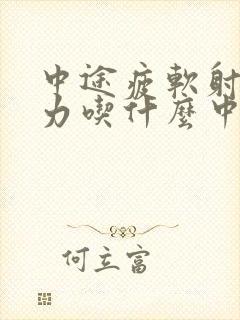 中途疲軟射
力喫什麼中
何立富